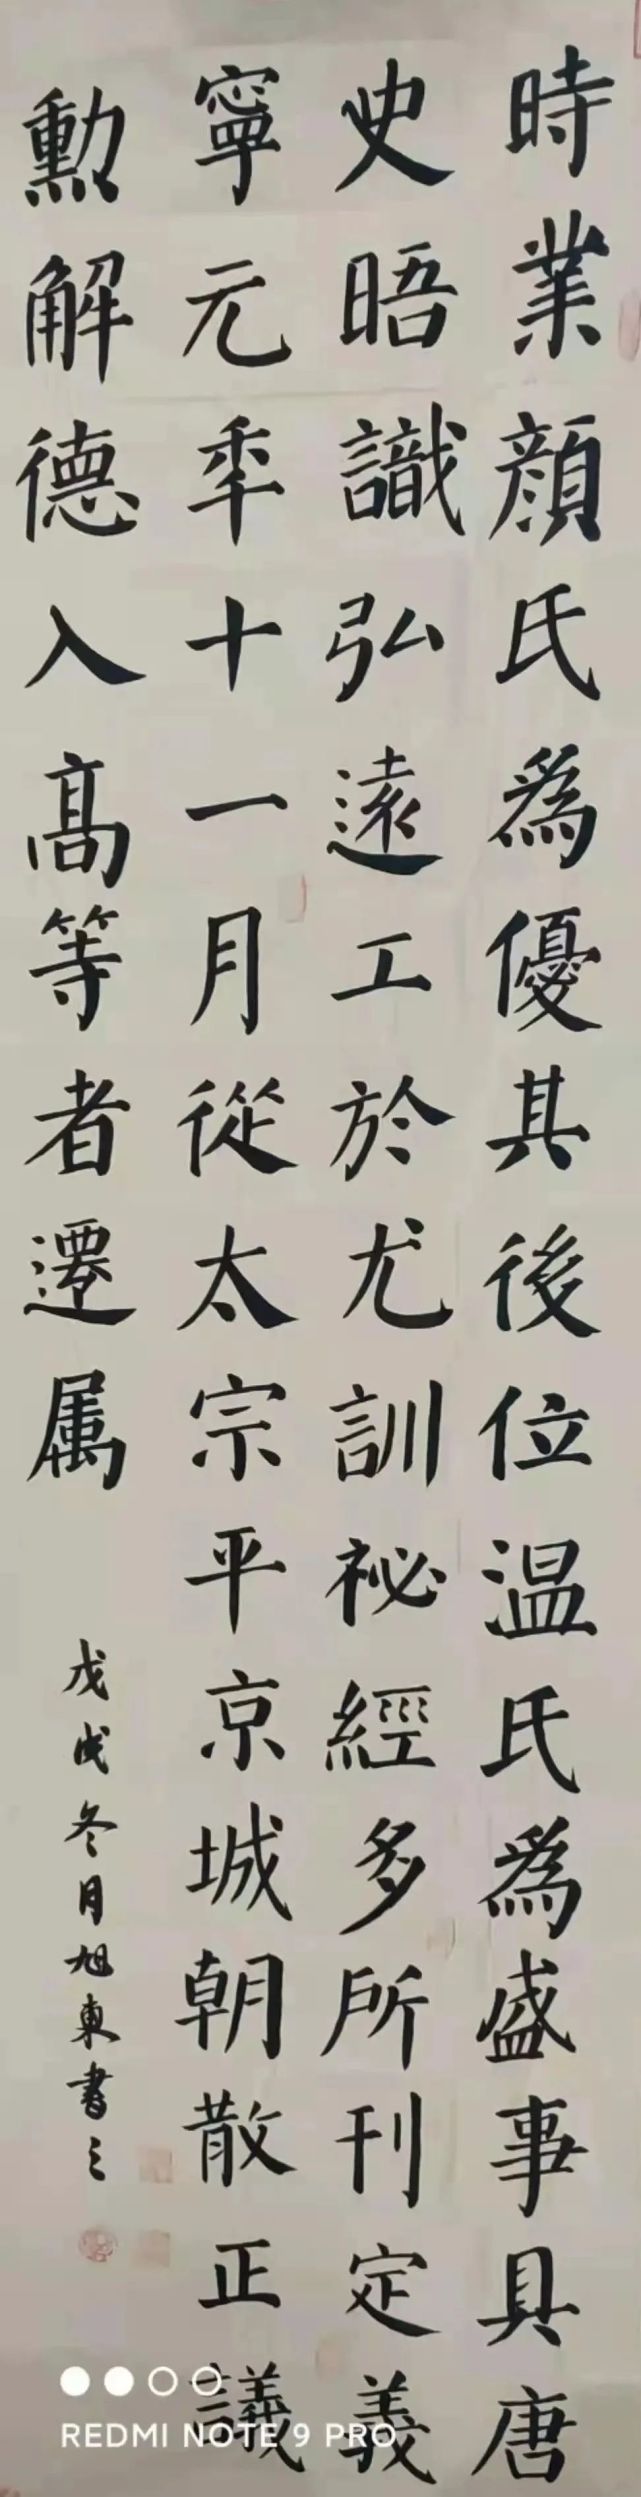 時業顔氏為優其後位温氏為盛事具唐
史晤識弘遠工於尤訓祕經多所刊定義
寧元年十一月從太宗平京城朝散正議
勲解德入高等者遷属
戊戌冬月旭東書之
REDMI NOTE 9 PRO